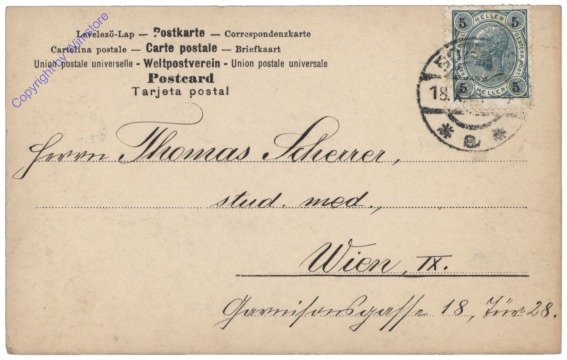 Levelező-Lap — Postkarte — Correspondenzkarte
Cartolina postale — Carte postale — Briefkaart
Union postale universelle - Weltpostverein - Union postale universale
Postcard
Tarjeta postal
Copyright by ekimstore
5 HELLER 5
5 HELLER 5
18.
* a *
Herrn Thomas Scherrer,
stud. med.,
Wien, IX.
Garnisonsgasse 18, Tür 28.